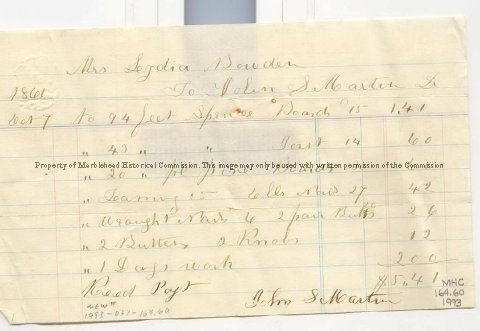 Mrs Lydia Bowden
To John S Martin Dr
1861
Oct 7 to 94 feet Spruce Boards 15 1,41
" 43 " " Joist 14 60
Property of Marblehead Historical Commission. This image may only be used with written permission of the Commission
" 20 " pine Boards
" 15 lbs Nails 27 42
" Wrought Nails 6 2 pair Butts 20 26
" 2 Buttons 2 Knobs 12
" 1 Days work 2 00
Recd Payt $5,41
John S Martin
MHC
164.60
1993
NEW #
1993-037-164.60